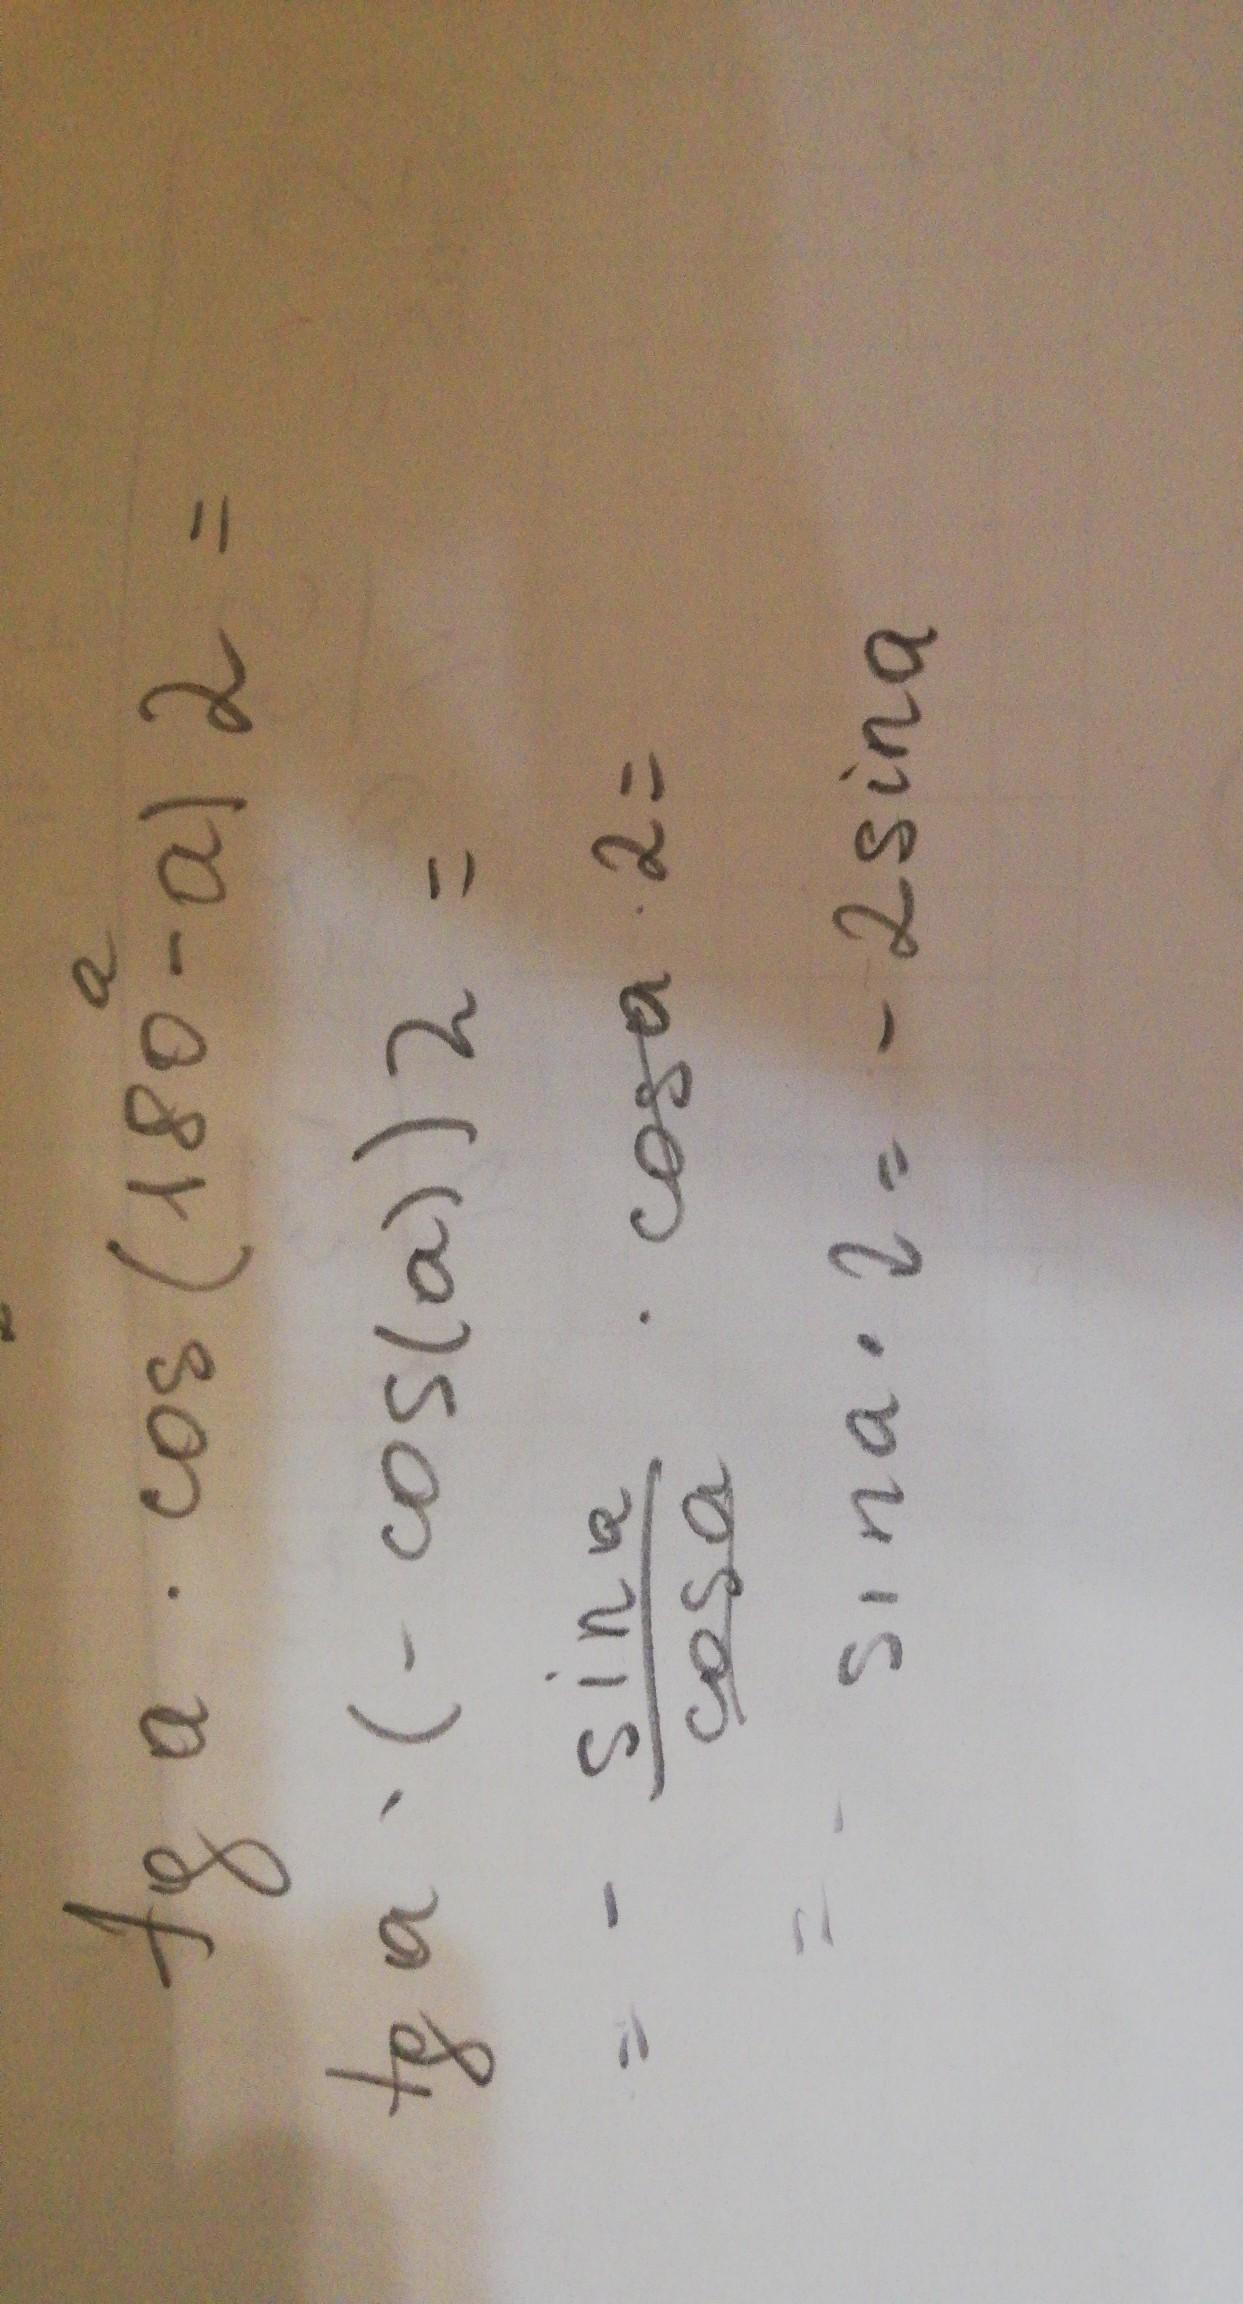 tg a · cos (180 - a) 2 =
a
tg a · (- cos(a)) 2 =
= - sin a / cos a · cos a · 2 =
= - sin a · 2 = - 2 sin a